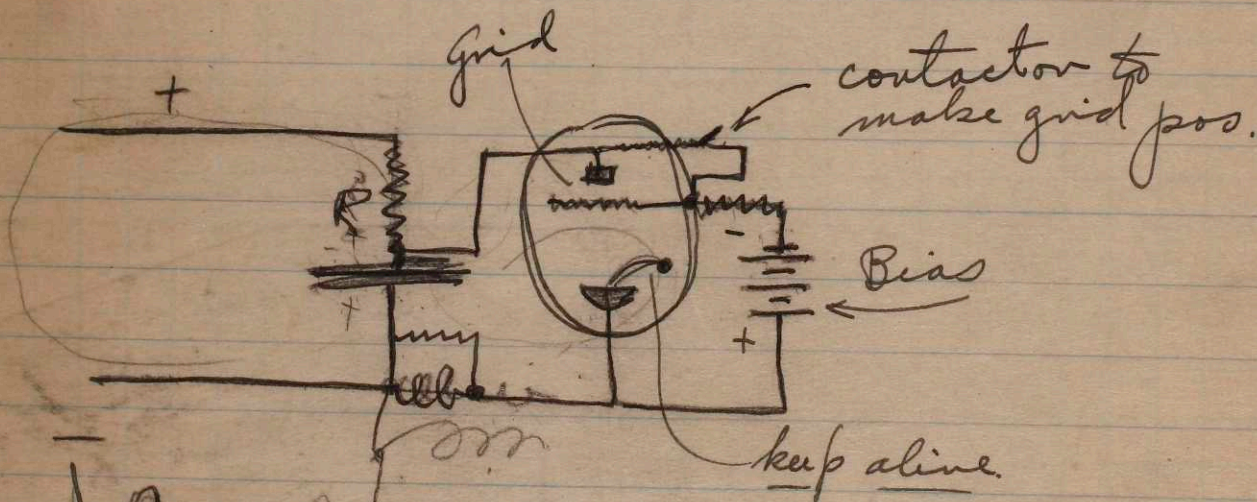 Grid
contactor to
make grid pos.
+
R
+
-
Bias
+
+
-
keep alive.